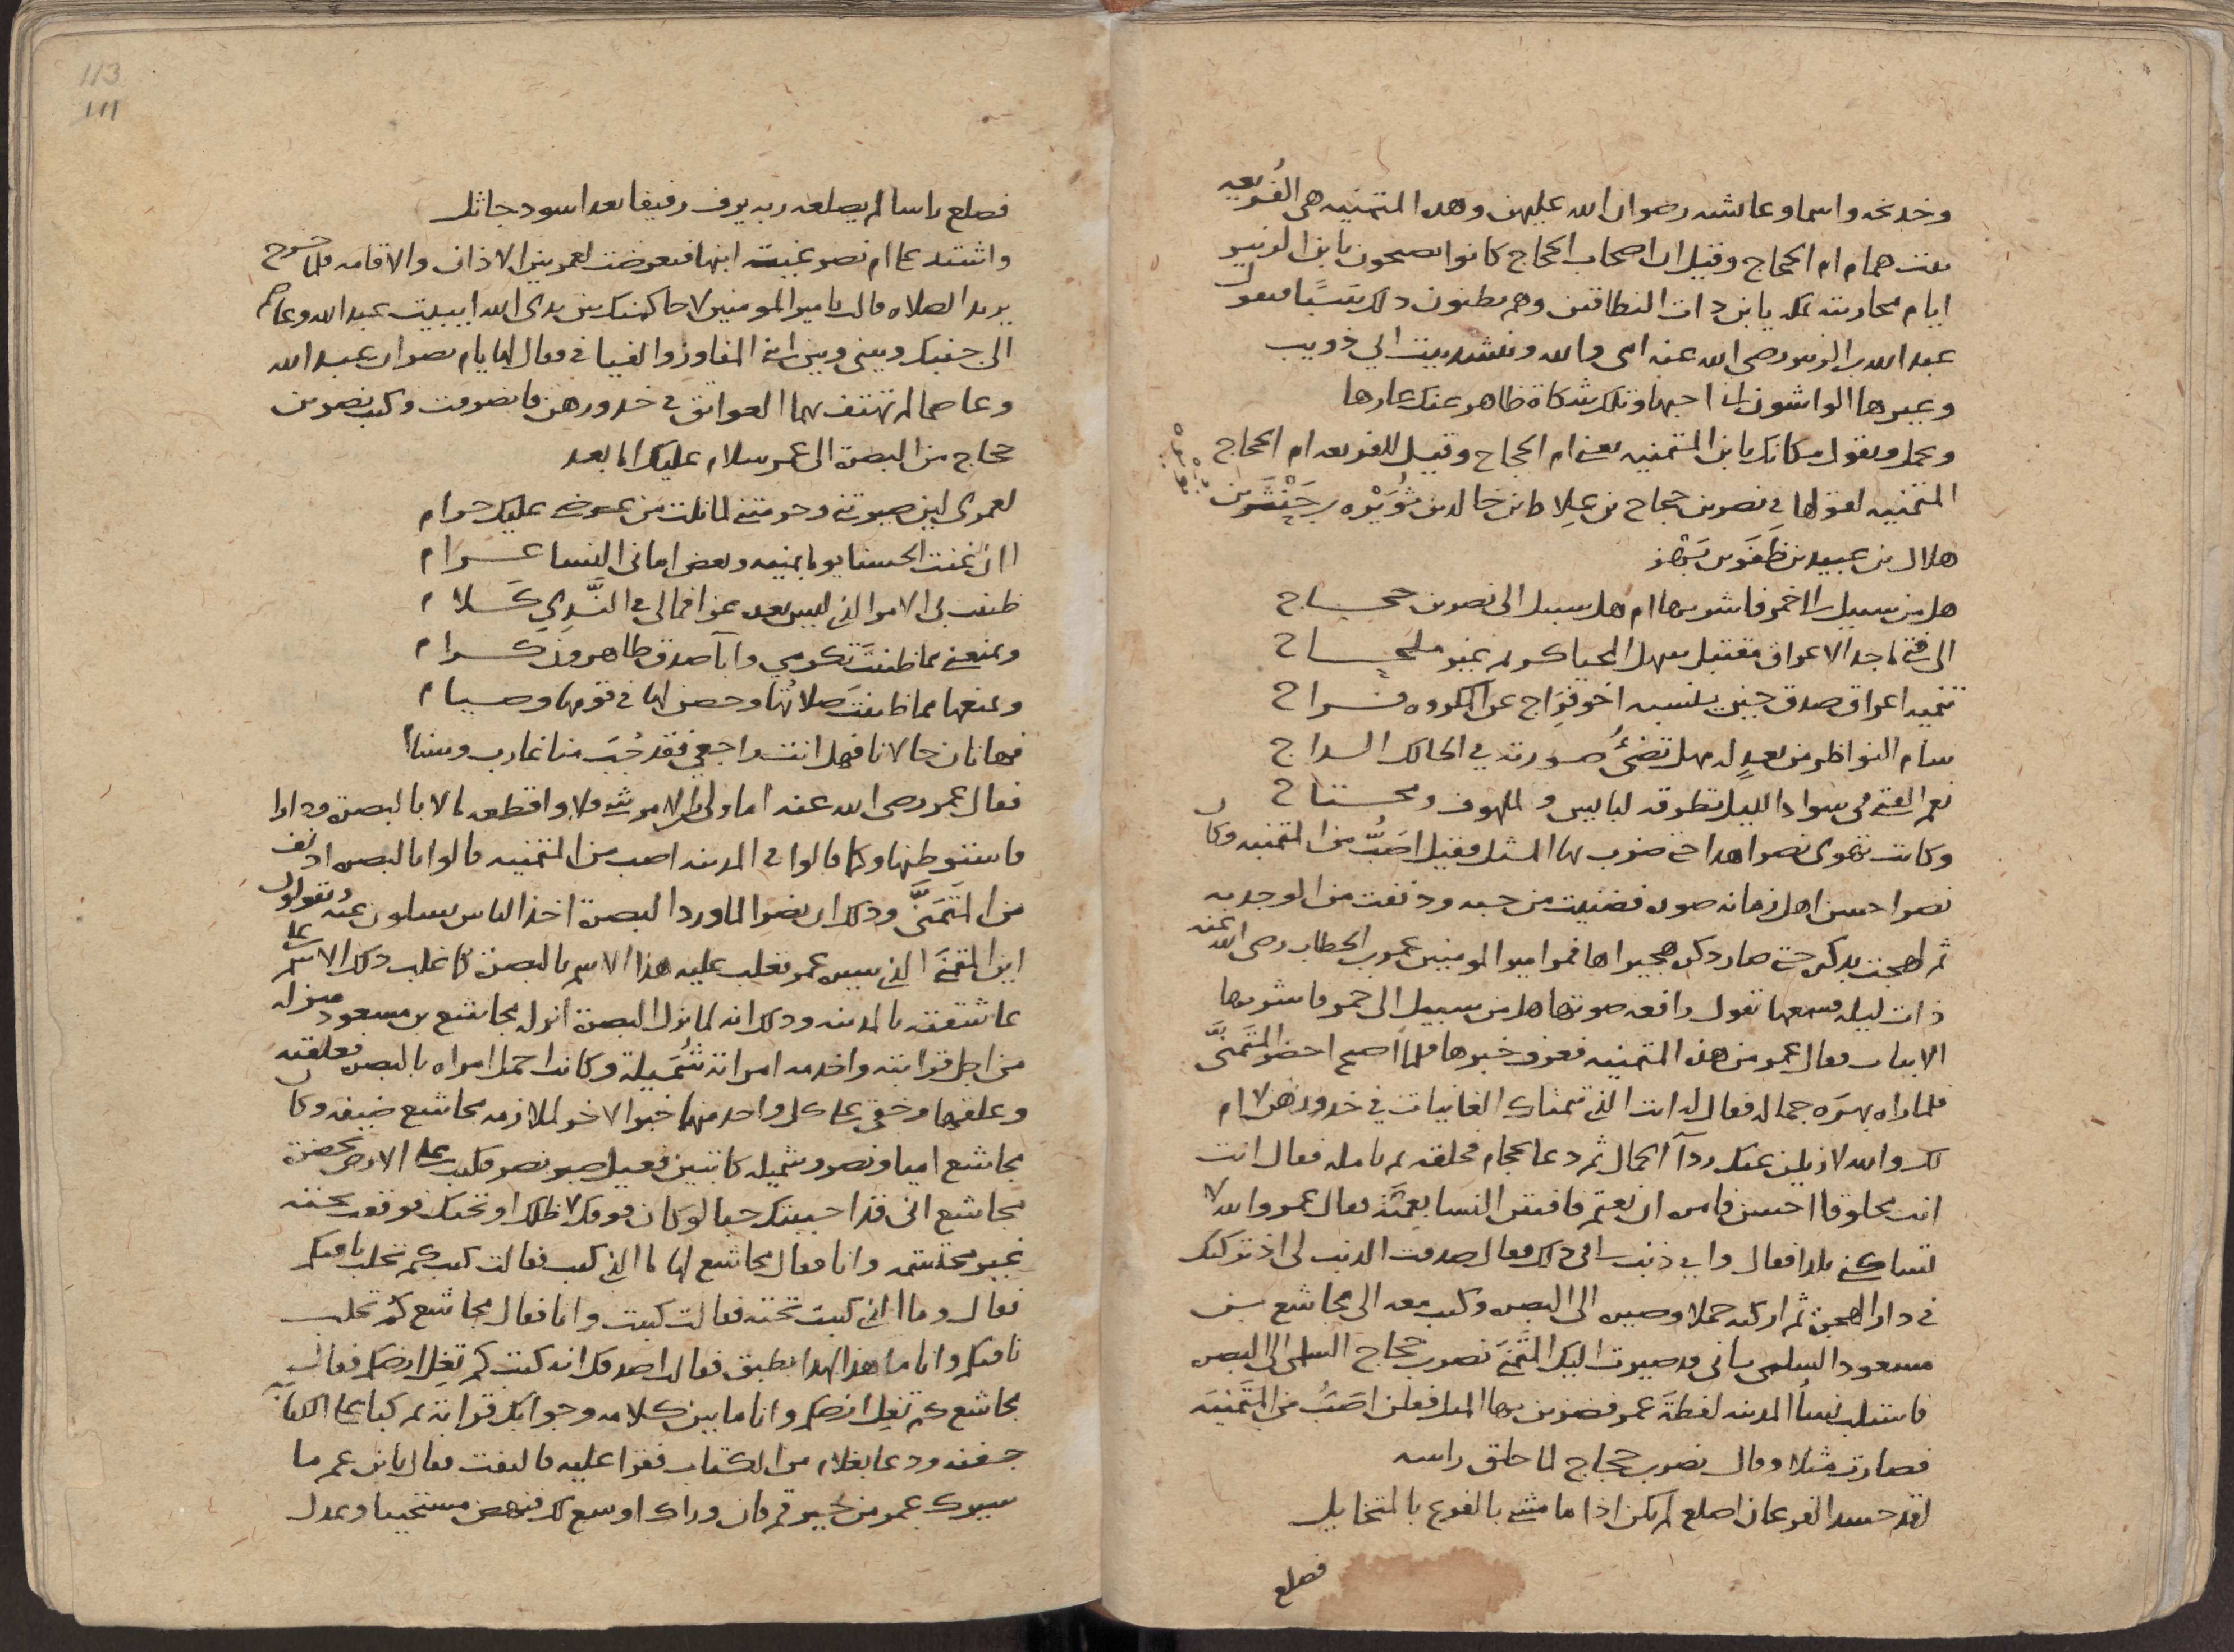 وخديجه واسما وعايشه رضوان الله عليهن وهذه المتمنيه هي الفُريعه
بنت همام ام الحجاج وقيل ان اصحاب الحجاج كانوا يصيحون بابن الزبير
ايام محاربته بمكه يا بن ذات النطاقين وهم يظنون ذلك سَبًّا فيقول
عبد الله بن الزبير رضي الله عنه امي والله وينشد بيت ابي ذويب
وعيرها الواشون اني احبها وتلك شكاة ظاهر عنك عارها
ويحمل ويقول مكانك يا بن المتمنيه يعني ام الحجاج وقيل للفريعه ام الحجاج
المتمنيه لقولها في نصر بن حجاج بن عِلاط بن خالد بن ثُوَيْره بن حَنْثَر بن
هلال بن عبيد بن ظَفَر بن بَهْز
هل من سبيل الى خمر فاشربها ام هل سبيل الى نصر بن حجاج
الى فتى ماجد الاعراق مقتبل سهل المحيا كريم غير ملجاج
تنميه اعراق صدق حين ينسبه اخو فِرَاج عن المكروه فراج
سام النواظر من بعدٍ له مهل تضيُ صورته في الحالك الداج
نعم الفتى في سواد الليل تطرقه لبايس او لملهوف ومحتاج
وكانت تهوى نصرا هذا حتى ضرب بها المثل فقيل اصَبُّ من المتمنيه وكان
نصرا احسن اهل زمانه صوره فضنيت من حبه ودنفت من الوجد به
ثم لهجت بذكره حتى صار ذكره هجيراها فمر امير المومنين عمر بن الخطاب رضى الله عنه
ذات ليله فسمعها تقول رافعه صوتها هل من سبيل الى خمر فاشربها
الابيات فقال عمر من هذه المتمنيه فعرف خبرها فلما اصبح احضر المتَمَنَّى
فلما راه بهَره جماله فقال له انت الذي تمناك الغانيات في خدورهن لا ام
لك والله لازيلن عنك رداآ الجمال ثم دعا بحجام فحلقه ثم تامله فقال انت
انت محلوقا احسن فامره ان يعتم فافتتن النسا بعِمَّته فقال عمر والله لا
تساكنني بلدا فقال واي ذنب لي في ذلك فقال صدقت الذنب لي اذ تركتك
في دار الهجره ثم اركبه جملا وصيره الى البصره وكتب معه الى مجاشع بن
مسعود السلمى باني قد صيرت اليك المتَّمَنى نصر بن حجاج السلمى الى البصره
فاستلب نساُ المدينه لفظةَ عمر فضربن بها المثل فقلن اصَبُّ من المتَّمَنِيَه
فصارت مثلا وقال نصر بن حجاج لما حلق راسه
لقد حسد الفرعان اصلع لم يكن اذا ما مشى بالفرع بالمتخايل
فصلع
113
111
فصلع راسا لم يصلعه ربه يرف رفيفا بعد اسود جاثل
واشتد على ام نصر غيبت ابنها فتعرضت لعمر بين الاذان والاقامه فلما خرج
يريد الصلاه قالت يا امير المومنين لاحاكمنك بين يدى الله ايبيت عبد الله وعاصم
الى جنبك وبيني وبين ابني المفاوز والفيافي فقال لها يا ام نصر ان عبد الله
وعاصما لم تهتف بهما العواتق في خدورهن فانصرفت وكتب نصر بن
حجاج من البصرة الى عمر سلام عليك اما بعد
لعمرى لين صيرتني وحرمتني لما نلت من عرضى عليك حرام
اان غنت الحسنا يوما بمنيه وبعض اماني النسا غرام
ظننت بي الامر الذي ليس بعده عزا فمالي في النَّدِي كَلام
ويمنعني مما ظننتَ تكرمي واباآ صدق طاهرون كرام
ويمنعها مما ظننتَ صلاتُها وحصن لها في قومها وصيام
فهاتان حالانا فهل انت راجعي فقد جُبَّ منا غارب وسنام
فقال عمر رضى الله عنه اما ولي الامر شي فلا واقطعه مالا بالبصره ودارا
فاستوطنها وكما قالوا في المدينه اصب من المتمنيه قالوا بالبصره ادنف
من المتَمَنَّى وذلك ان نصرا لما ورد البصرة اخذ الناس يسالون عنه ويقولون
اين المتمنَى الذي سيره عمر فغلب عليه هذا الاسم بالبصرة كما غلب ذلك الاسم على
عاشقته بالمدينه وذلك انه لما نزل البصرة أنزله مجاشع بن مسعود منزله
من اجل قرابته واخدمه امراته شُمَيلة وكانت اجمل امراه بالبصره فعلقته
وعلقها وخفي على كل واحد منهما خبر الاخر لملازمه مجاشع ضيفه وكان
مجاشع اميا ونصر وشميله كاتبين فعيل صبر نصر فكتب على الارض بحضرة
مجاشع انى قد احببتك حبا لو كان فوقك لاظلك او تحتك فوقعت تحته
غير محتشمه وانا فقال مجاشع لها ما الذي كتب فقالت كتب كم تحلب ناقتكم
فقال وما الذي كتبت تحته فقالت كتبت وانا فقال مجاشع كم تحلب
ناقتكم وانا ما هذا لهذا بطبق فقالت اصدقك انه كتب كم تغِل ارضكم فقال
مجاشع كم تغِل ارضكم وانا ما بين كلامه وجوابك قرابة ثم كفا على الكتابة
جفنه ودعا بغلام من الكتاب فقرا عليه فالتفت فقال يا بن عم ما
سيرك عمر من خير قم فان وراك اوسع لك فنهض مستحييا وعدل